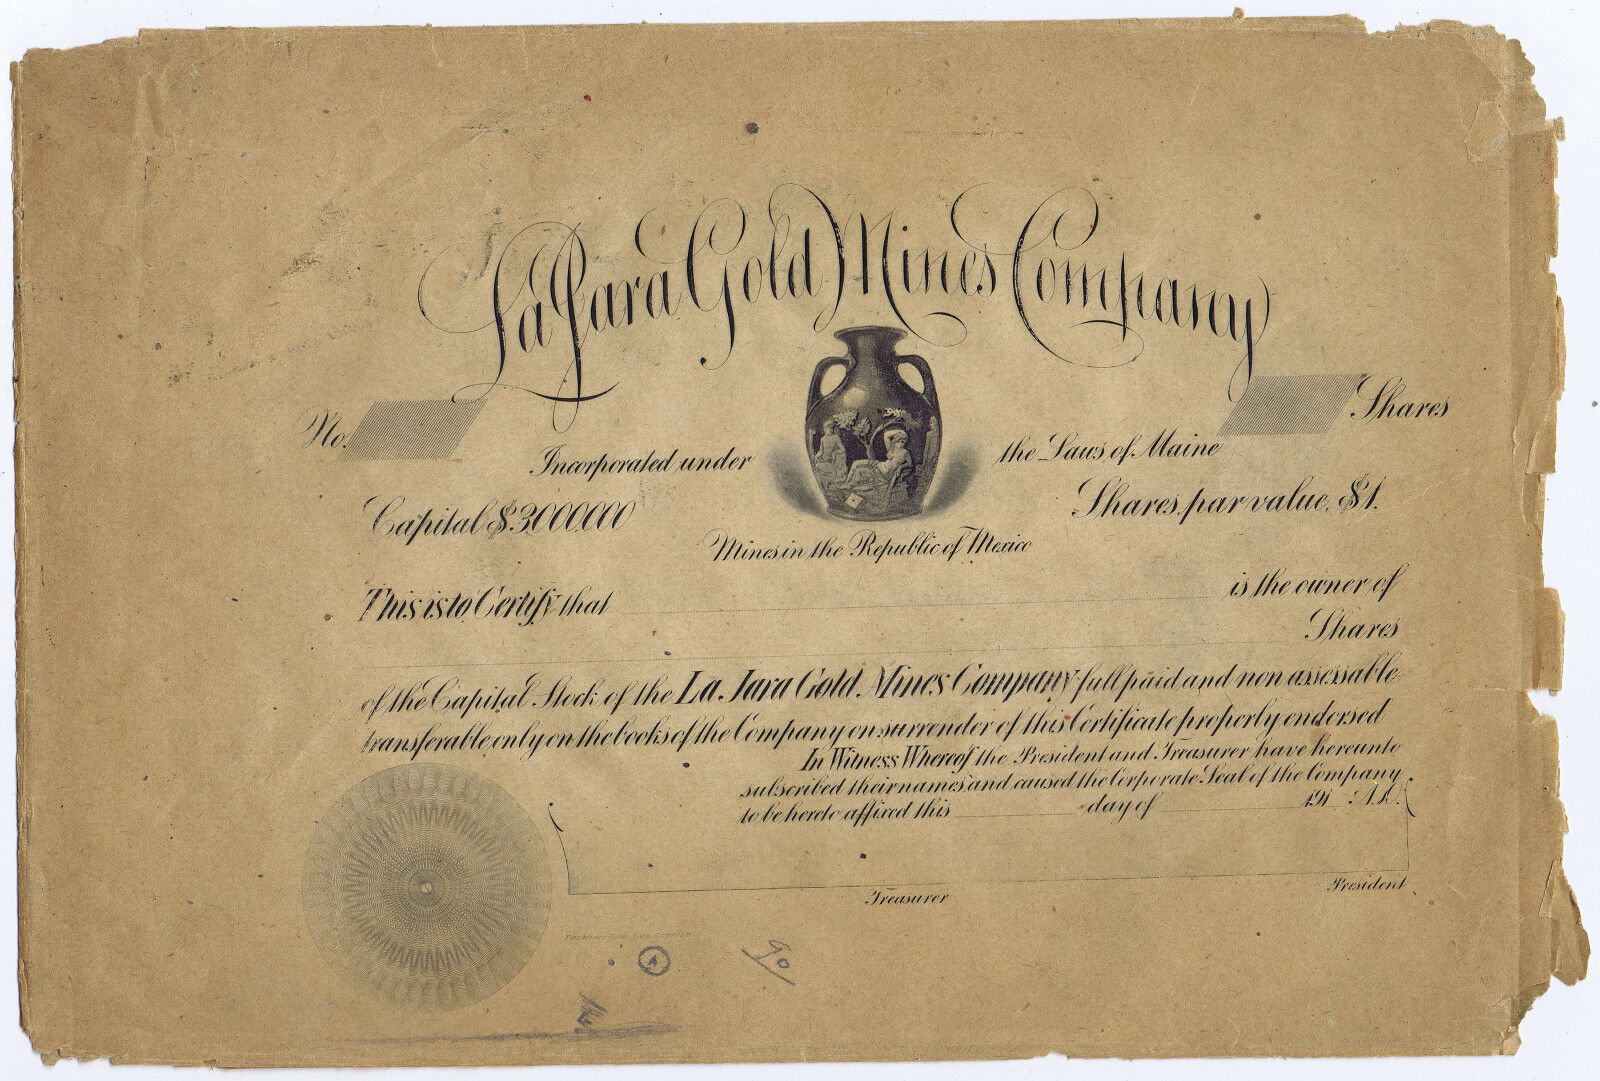 La Jara Gold Mines Company
No. Shares
Incorporated under the Laws of Maine
Capital $3,000,000 Shares, par value, $1.
Mines in the Republic of Mexico
This is to Certify that is the owner of
Shares
of the Capital Stock of the La Jara Gold Mines Company full paid and non assessable
transferable only on the books of the Company on surrender of this Certificate properly endorsed
In Witness Whereof the President and Treasurer have hereunto
subscribed their names and caused the Corporate Seal of the Company
to be hereto affixed this day of 191 A.D.
President
Treasurer